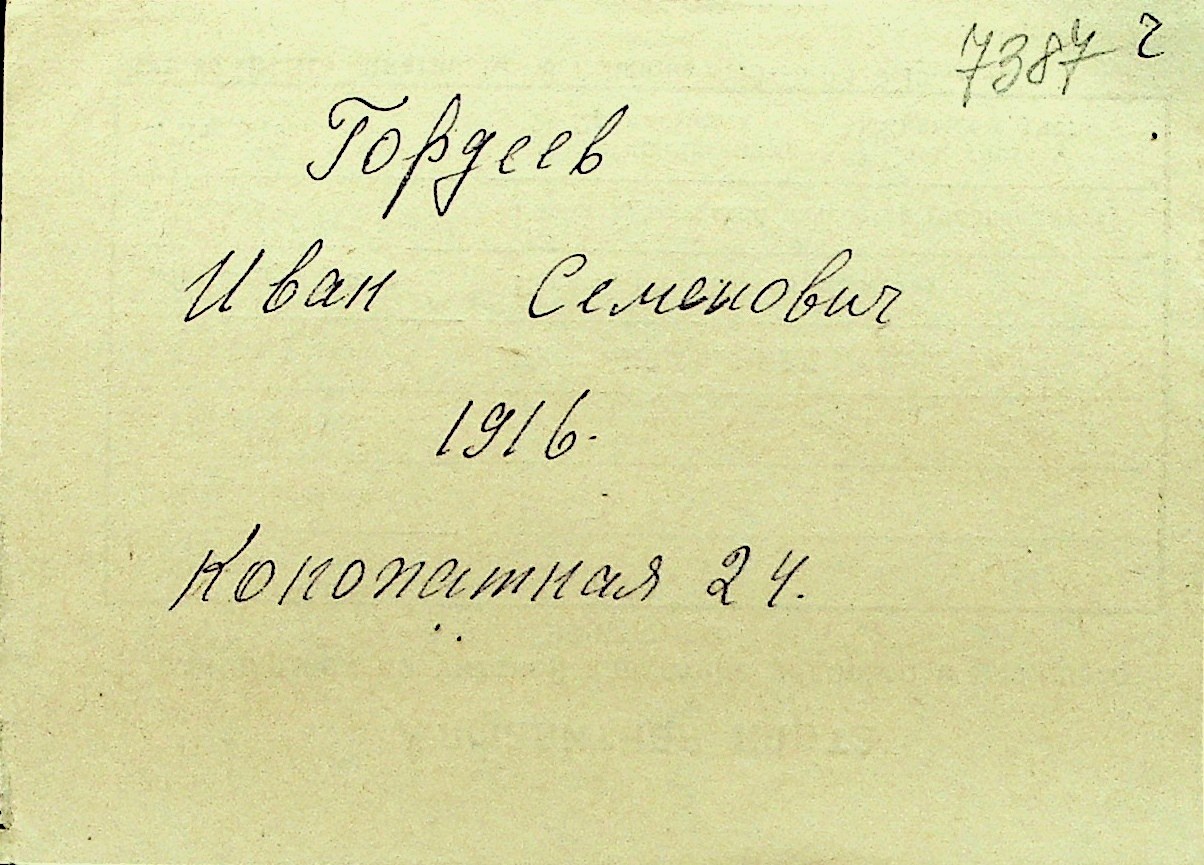 7387 г
Гордеев
Иван Семенович
1916.
Конопатная 24.